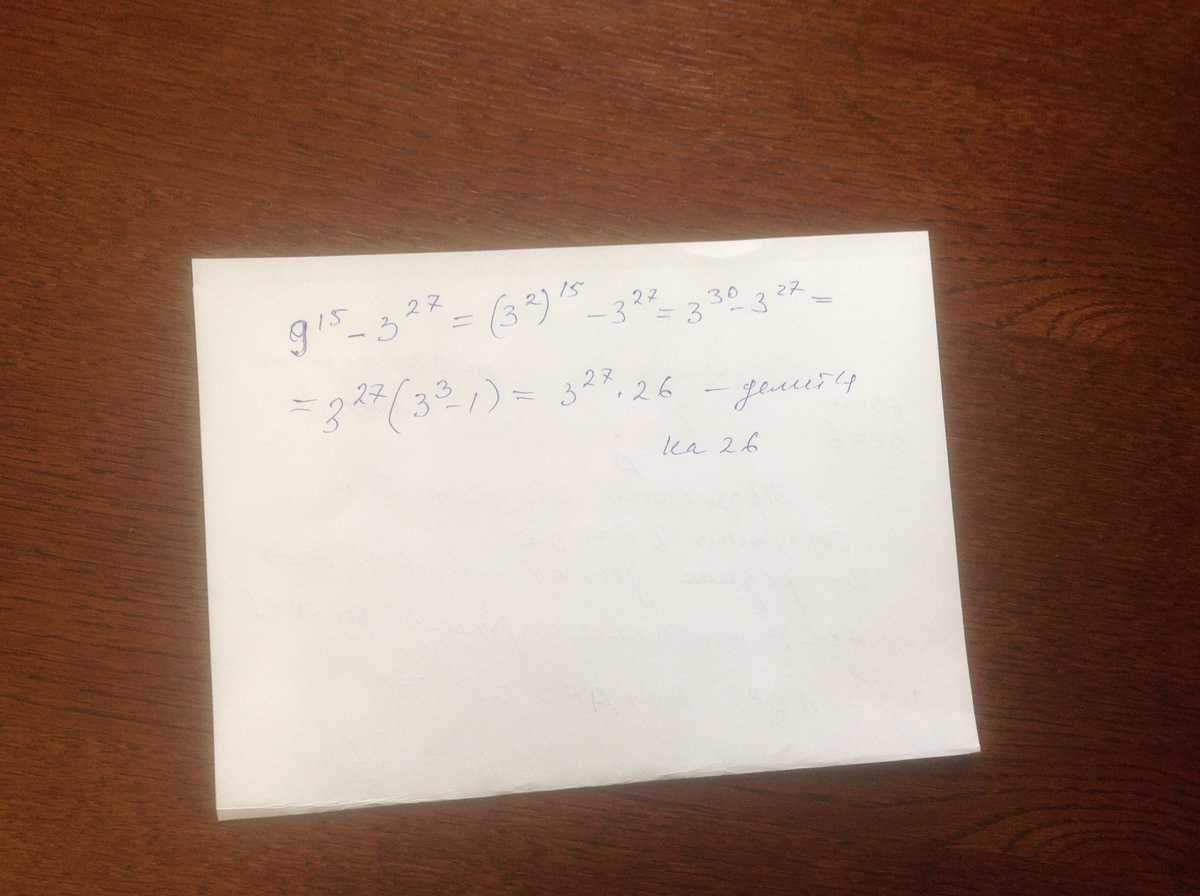 9¹⁵ - 3²⁷ = (3²)¹⁵ - 3²⁷ = 3³⁰ - 3²⁷ =
= 3²⁷(3³ - 1) = 3²⁷ · 26 - делится
на 26